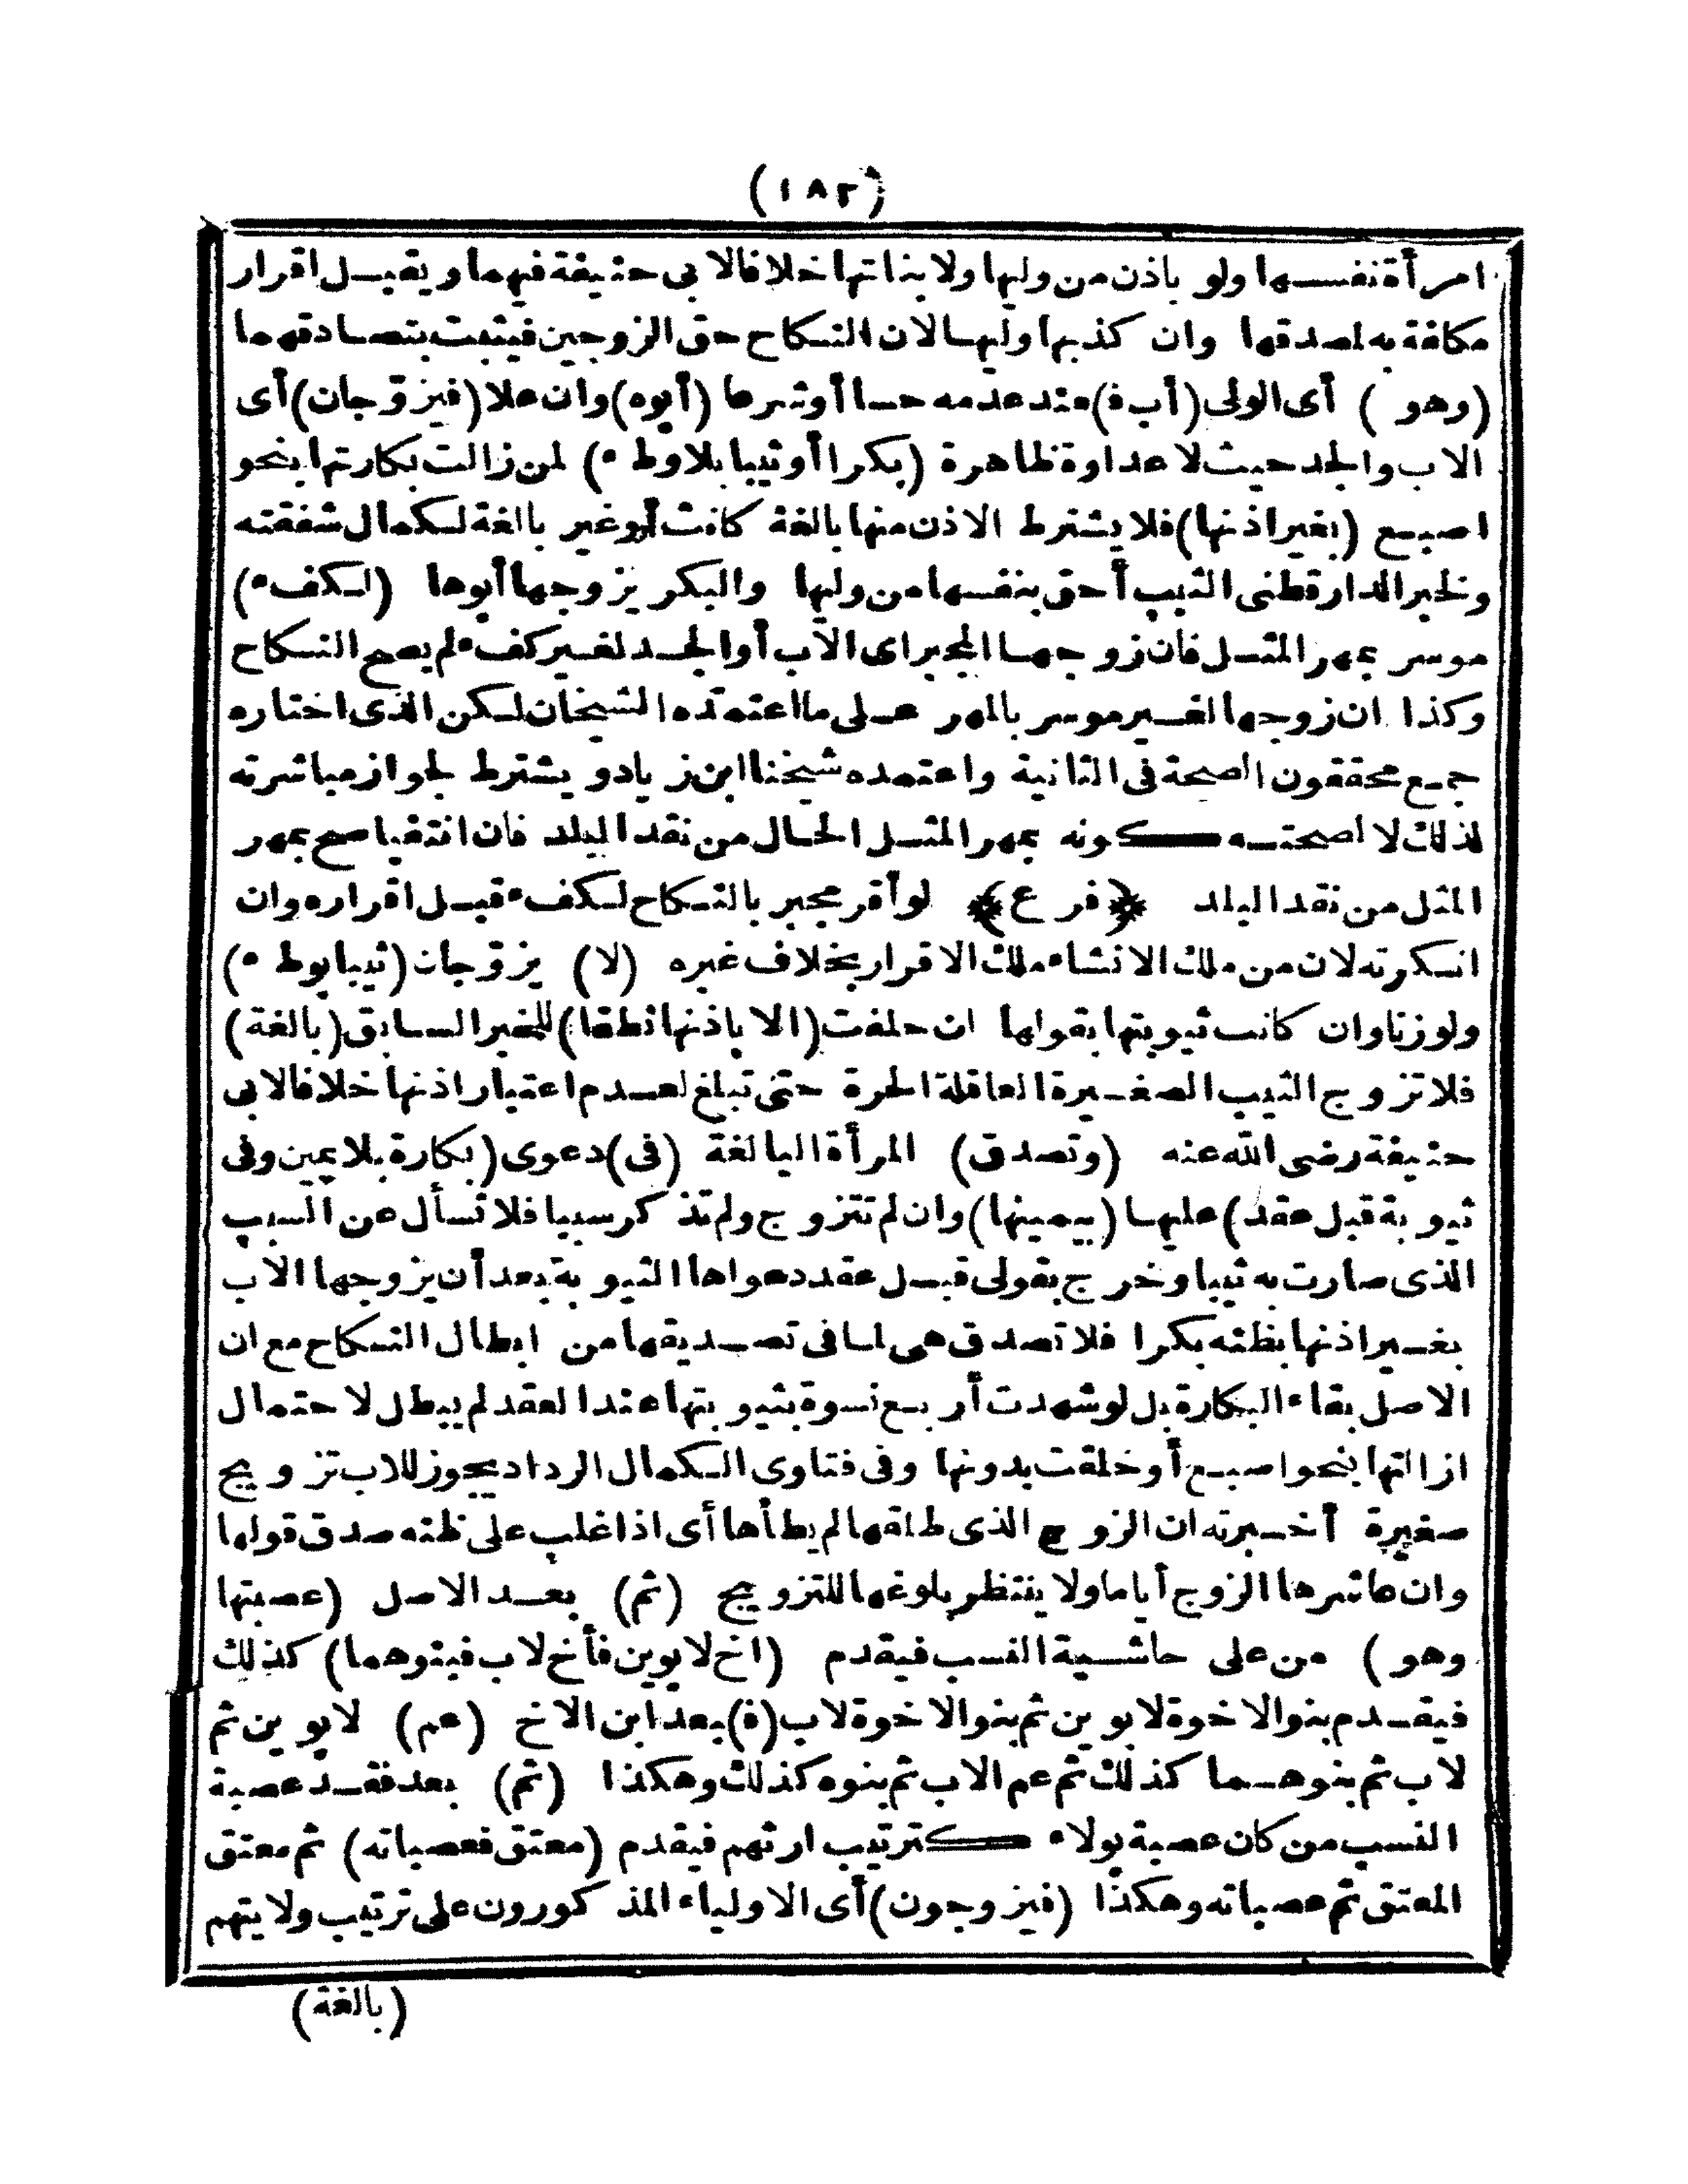 (١٨٢)
امرأة نفسها ولو باذن من وليها ولا بناتها خلافا لابى حنيفة فيهما ويقبل اقرار
مكلفة به لمصدقها وان كذبها وليها لان النكاح حق الزوجين فيثبت بتصادقهما
(وهو) أى الولى (أب ف) عند عدمه حسا أو شرعا (أبوه) وان علا (فيزوّجان) أى
الاب والجد حيث لا عداوة ظاهرة (بكرا أو ثيبا بلا وطء) لمن زالت بكارتها بنحو
اصبع (بغير اذنها) فلا يشترط الاذن منها بالغة كانت أو غير بالغة لكمال شفقته
ولخبر الدارقطنى الثيب أحق بنفسها من وليها والبكر يزوجها أبوها (لكفء)
موسر بمهر المثل فان زوجها المجبر اى الاب أو الجد لغير كفء لم يصح النكاح
وكذا ان زوجها لغير موسر بالمهر على ما اعتمده الشيخان لكن الذى اختاره
جمع محققون الصحة فى الثانية واعتمده شيخنا ابن زياد ويشترط لجواز مباشرته
لذلك لا لصحته كونه بمهر المثل الحال من نقد البلد فان انتفيا صح بمهر
المثل من نقد البلد ﴿فرع﴾ لو أقر مجبر بالنكاح لكفء قبل اقراره وان
انكرته لان من ملك الانشاء ملك الاقرار بخلاف غيره (لا) يزوّجان (ثيبا بوطء)
ولو زنا وان كانت ثيوبتها بقولها ان حلفت (الا باذنها نطقا) للخبر السابق (بالغة)
فلا تزوج الثيب الصغيرة العاقلة الحرة حتى تبلغ لعدم اعتبار اذنها خلافا لابى
حنيفة رضى الله عنه (وتصدق) المرأة البالغة (فى) دعوى (بكارة بلا يمين وفى
ثيوبة قبل عقد) عليها (بيمينها) وان لم تتزوج ولم تذكر سببا فلا تسأل عن السبب
الذى صارت به ثيبا وخرج بقولى قبل عقد دعواها الثيوبة بعد أن يزوجها الاب
بغير اذنها بظنه بكرا فلا تصدق هى لما فى تصديقها من ابطال النكاح مع ان
الاصل بقاء البكارة بل لو شهدت أربع نسوة بثيوبتها عند العقد لم يبطل لاحتمال
ازالتها بنحو اصبع أو خلقت بدونها وفى فتاوى الكمال الرداد يجوز للاب تزويج
صغيرة أخبرته ان الزوج الذى طلقها لم يطأها أى اذا غلب على ظنه صدق قولها
وان عاشرها الزوج أياما ولا ينتظر بلوغها للتزويج (ثم) بعد الاصل (عصبتها
وهو) من على حاشية النسب فيقدم (اخ لابوين فأخ لاب فبنوهما) كذلك
فيقدم بنو الاخوة لابوين ثم بنو الاخوة لاب (ف) بعد ابن الاخ (عم) لابوين ثم
لاب ثم بنوهما كذلك ثم عم الاب ثم بنوه كذلك وهكذا (ثم) بعد فقد عصبة
النسب من كان عصبة بولاء كترتيب ارثهم فيقدم (معتق فعصباته) ثم معتق
المعتق ثم عصباته وهكذا (فيزوجون) أى الاولياء المذكورون على ترتيب ولايتهم
(بالغة)